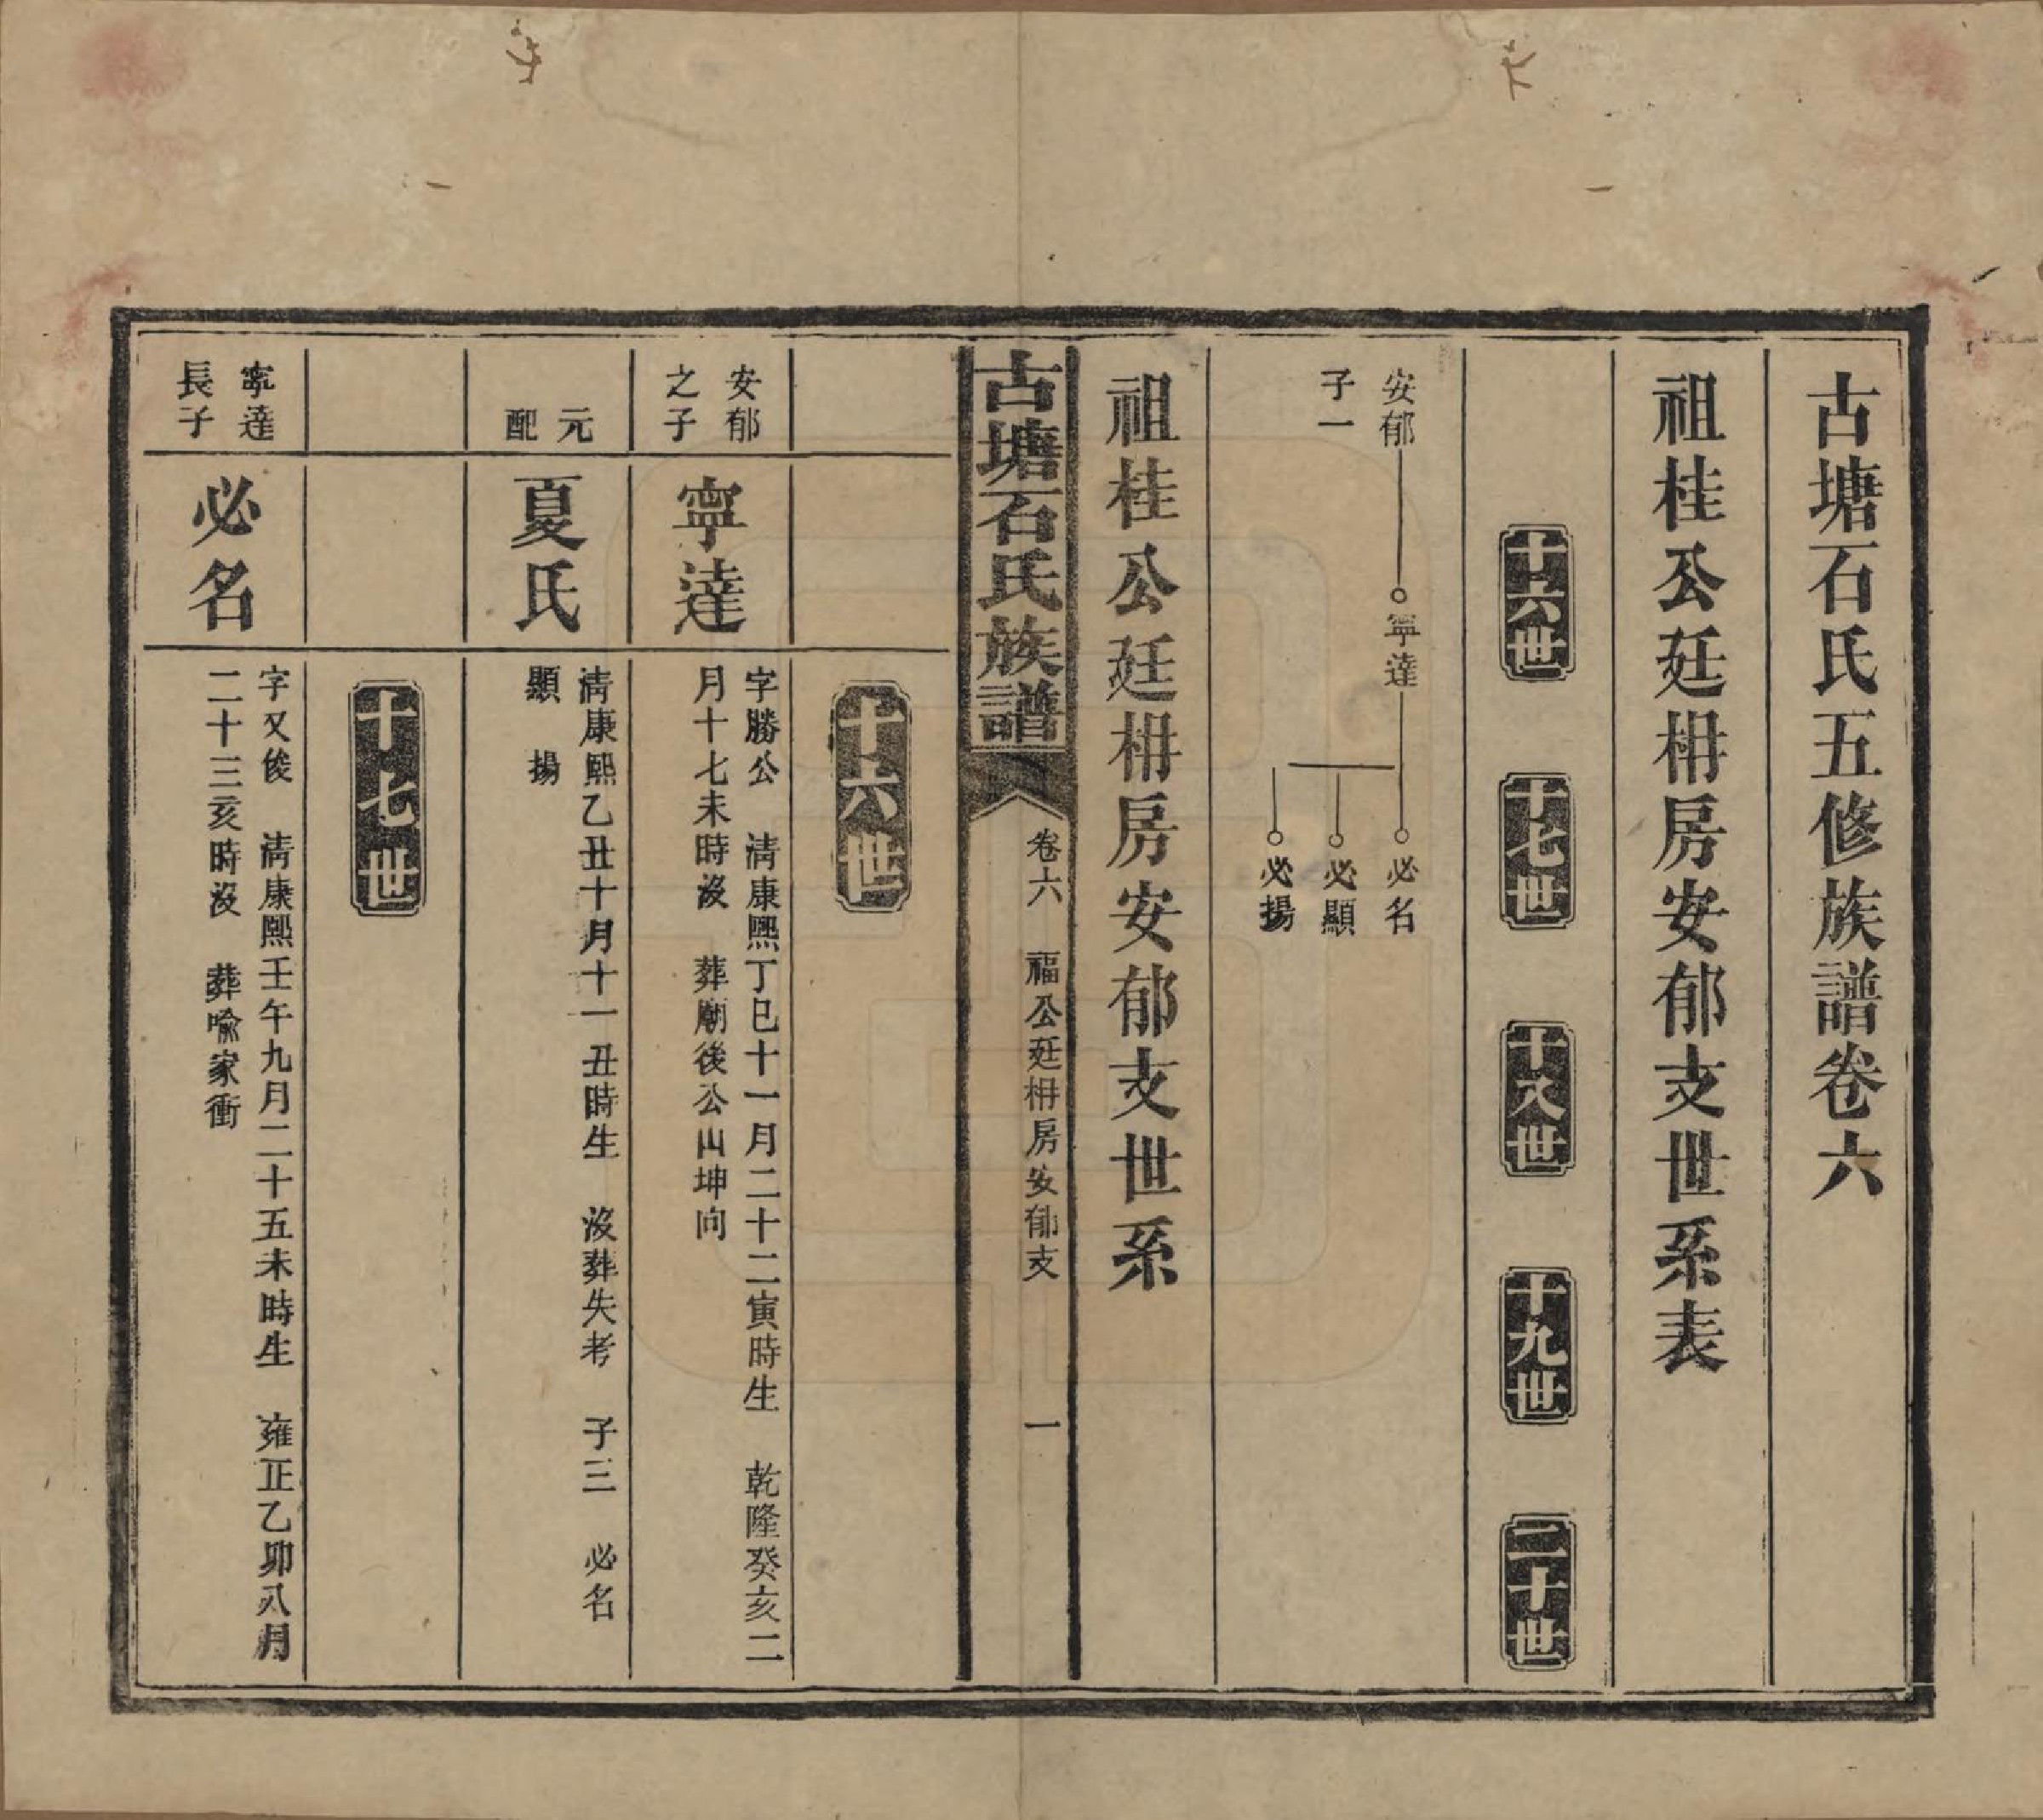 古塘石氏五修族譜卷六
祖桂公廷枏房安郁支世系表
十六世
十七世
十八世
十九世
二十世
安郁
子一
寧達
必名
必顯
必揚
祖桂公廷枏房安郁支世系
古塘石氏族譜
卷六　福公廷枏房安郁支　一
十六世
安郁
之子
寧達
字勝公　清康熙丁巳十一月二十二寅時生　乾隆癸亥二
月十七未時沒　葬廟後公山坤向
元
配
夏氏
清康熙乙丑十月十一丑時生　沒葬失考　子三　必名
顯　揚
十七世
寧達
長子
必名
字又俊　清康熙壬午九月二十五未時生　雍正乙卯八月
二十三亥時沒　葬喻家衝